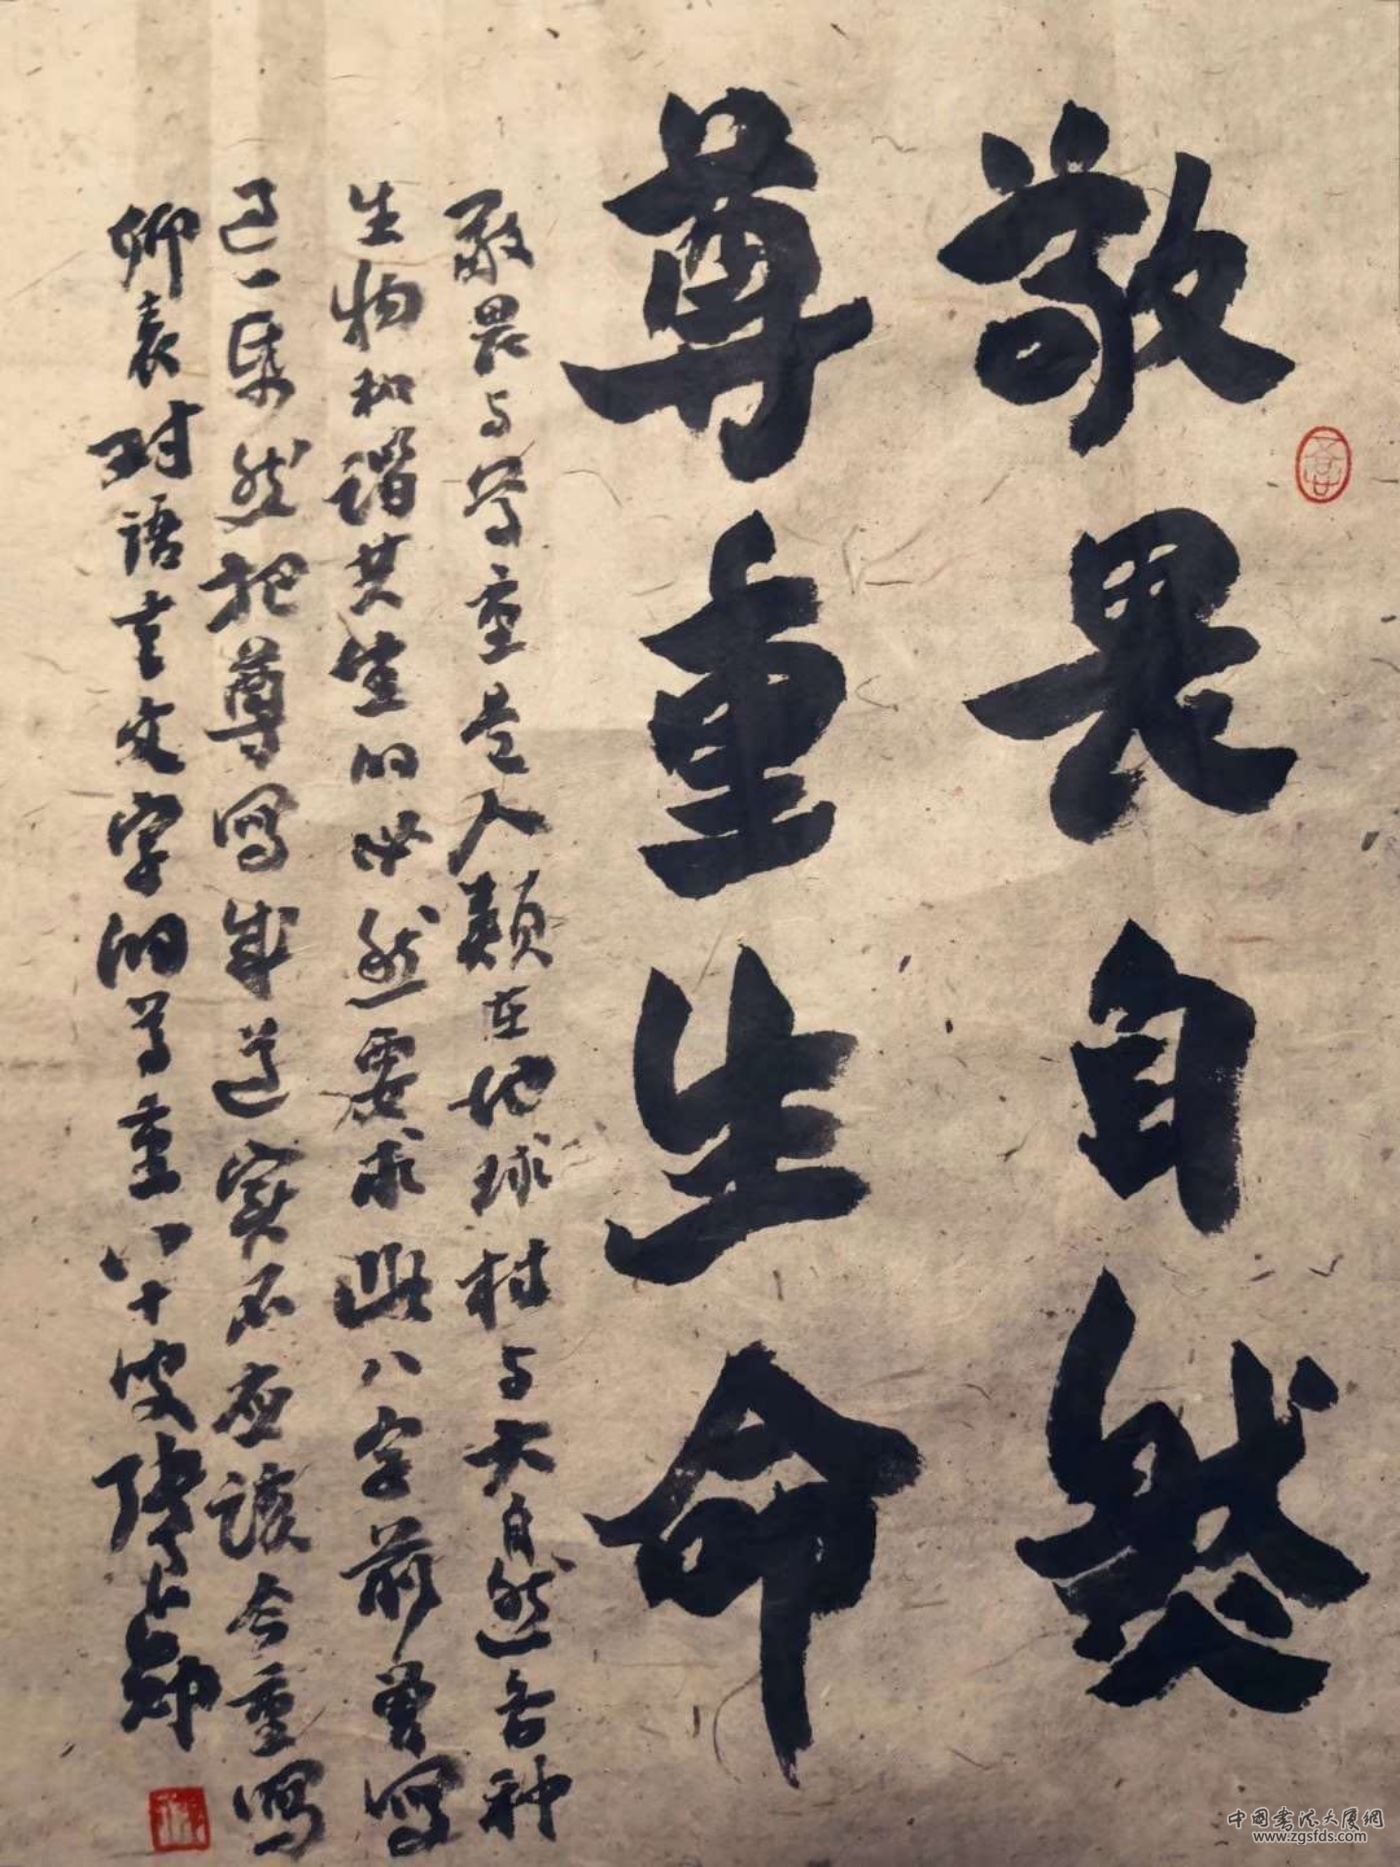 敬畏自然
尊重生命
敬畏与尊重是人類在地球村与大自然各种
生物和谐共生的必然要求此八字前曾写
过一集然把尊写成道实不应该今重写
聊表对语言文字的尊重八十叟
中国书法大厦網
www.zgsfds.com